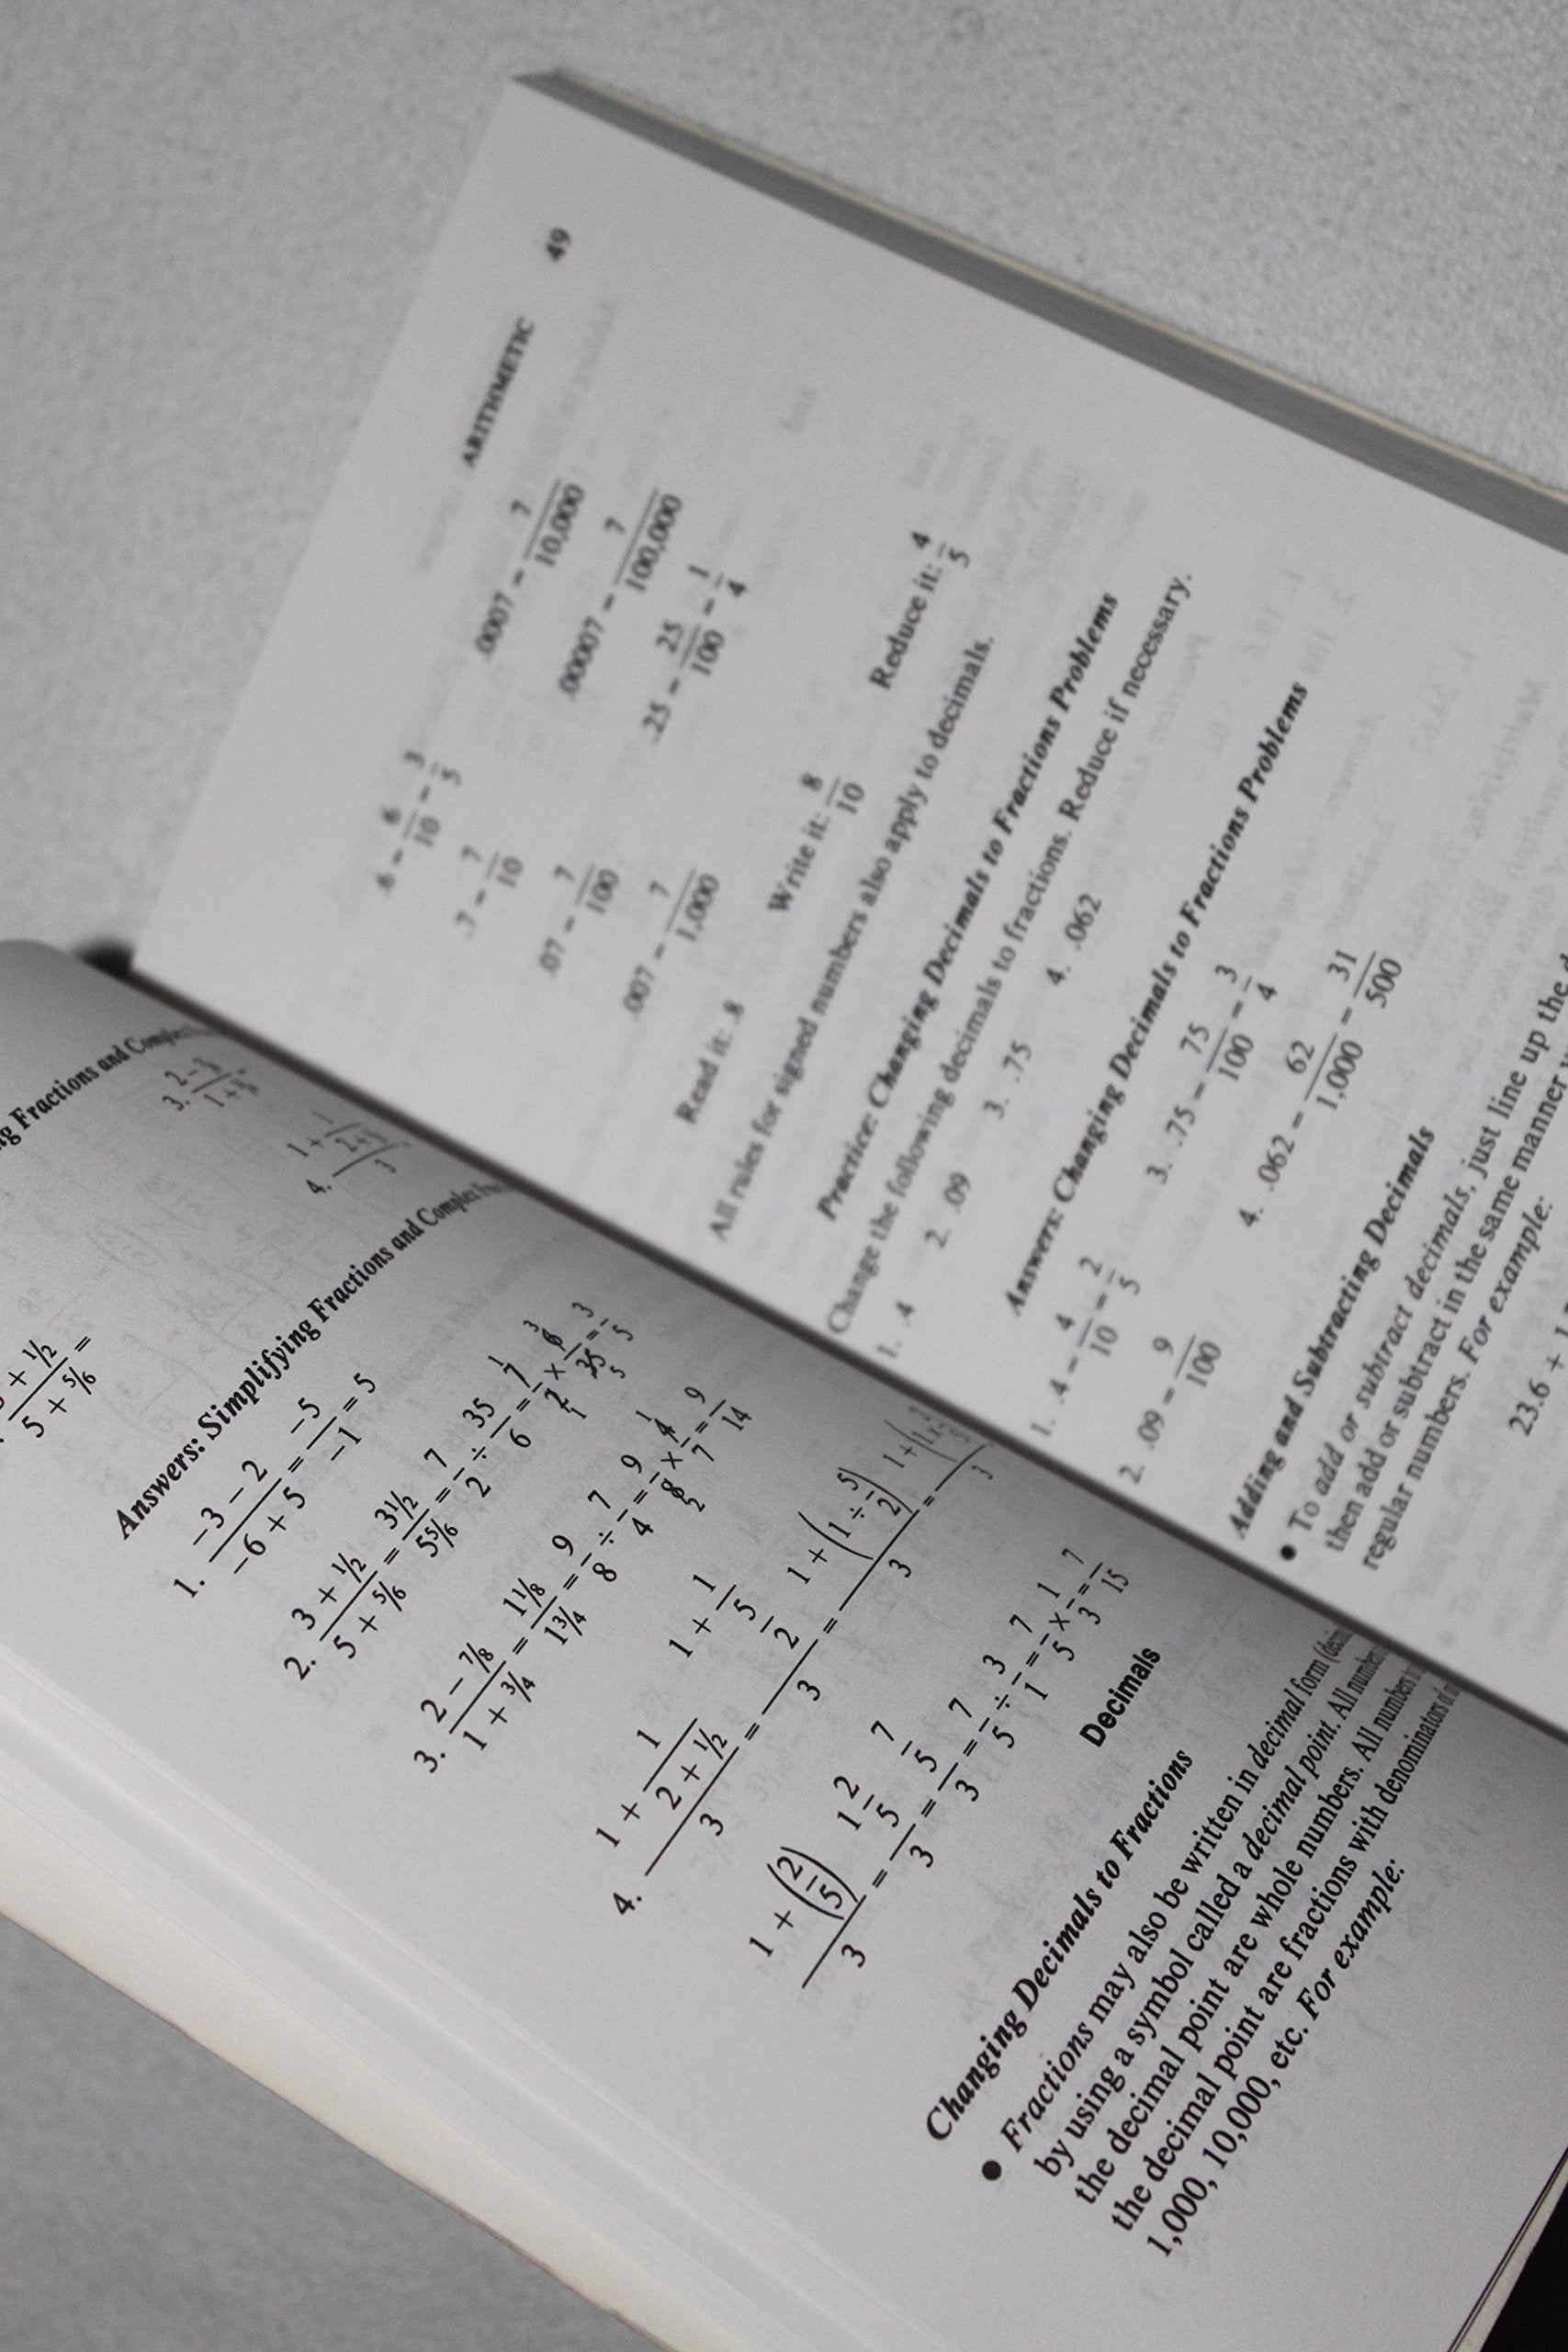 ng Fractions and
3. 2 –
1 +
4. 1 + 1
3
+ 1/2
5 + 5/6 =
Answers: Simplifying Fractions and Complex
1. –3 – 2 / –6 + 5 = –5 / –1 = 5
2. 3 + 1/2 / 5 + 5/6 = 3 1/2 / 5 5/6 = 7/2 ÷ 35/6 = 7/2 × 6/35 = 3/5
3. 2 – 7/8 / 1 + 3/4 = 1 1/8 / 1 3/4 = 9/8 ÷ 7/4 = 9/8 × 4/7 = 9/14
4. 1 + 1 / 2 + 1/2 / 3 = 1 + 1 / 5/2 / 3 = 1 + (1 ÷ 5/2) / 3 = 1 + (1 × / 3
1 + (2/5) / 3 = 1 2/5 / 3 = 7/5 / 3 = 7/5 ÷ 3/1 = 7/5 × 1/3 = 7/15
Decimals
Changing Decimals to Fractions
• Fractions may also be written in decimal form
by using a symbol called a decimal point. All
the decimal point are whole numbers. All numbers
the decimal point are fractions with denominators
1,000, 10,000, etc. For example:
ARITHMETIC 49
.6 = 6/10 = 3/5 .0007 = 7/10,000
.7 = 7/10 .00007 = 7/100,000
.07 = 7/100 .25 = 25/100 = 1/4
.007 = 7/1,000
Read it: .8 Write it: 8/10 Reduce it: 4/5
All rules for signed numbers also apply to decimals.
Practice: Changing Decimals to Fractions Problems
Change the following decimals to fractions. Reduce if necessary.
1. .4 2. .09 3. .75 4. .062
Answers: Changing Decimals to Fractions Problems
1. .4 = 4/10 = 2/5 3. .75 = 75/100 = 3/4
2. .09 = 9/100 4. .062 = 62/1,000 = 31/500
Adding and Subtracting Decimals
• To add or subtract decimals, just line up the
then add or subtract in the same manner
regular numbers. For example:
23.6 + 1